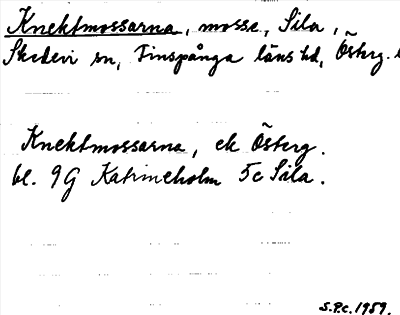 Knektmossarna, mosse, Sila,
Skedevi sn, Finspånga läns hd, Österg.
Knektmossarna, ek Österg.
bl. 9G Katrineholm 5c Sila.
S.P.C. 1959.